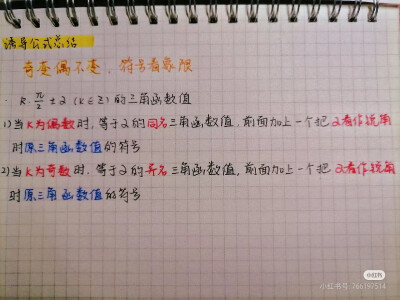 诱导公式总结
奇变偶不变,符号看象限
k·π/2±α(k∈Z)的三角函数值
1)当k为偶数时,等于α的同名三角函数值,前面加上一个把α看作锐角
时原三角函数值的符号
2)当k为奇数时,等于α的异名三角函数值,前面加上一个把α看作锐角
时原三角函数值的符号
小红书
小红书号:766197514